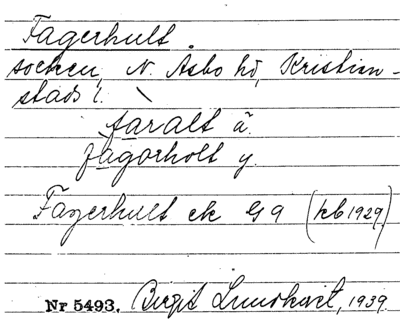 Fagerhult
socken, N. Åsbo hd, Kristian-
stads l.
faralt ä.
fagorholt y.
Fagerhult ek G9 (kb 1929)
Nr 5493. Birgit Lundkvist, 1939